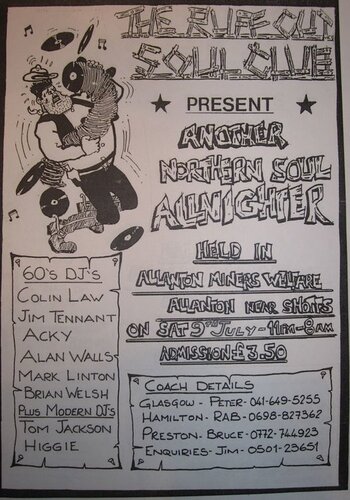 THE RUFF CUT
SOUL CLUB
PRESENT
ANOTHER
NORTHERN SOUL
ALLNIGHTER
HELD IN
ALLANTON MINERS WELFARE
ALLANTON NEAR SHOTTS
ON SAT 9TH JULY - 11PM-8AM
ADMISSION £3.50
60'S DJ'S
COLIN LAW
JIM TENNANT
ACKY
ALAN WALLS
MARK LINTON
BRIAN WELSH
PLUS MODERN DJ'S
TOM JACKSON
HIGGIE
COACH DETAILS
GLASGOW - PETER - 041-649-5255
HAMILTON - RAB - 0698-827362
PRESTON - BRUCE - 0772-744923
ENQUIRIES - JIM - 0501-23651